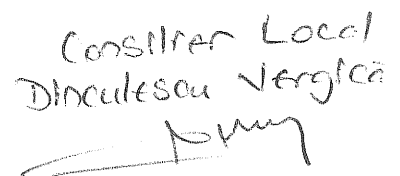 Consilier Local
Dinculescu Vergică